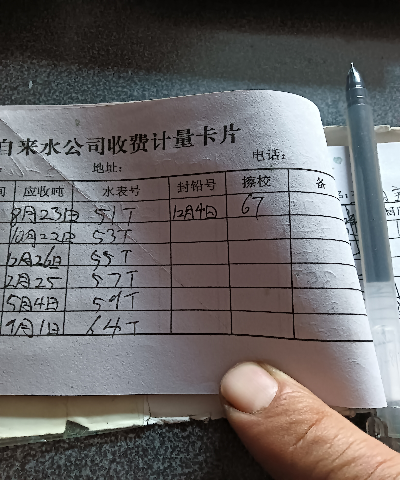 自来水公司收费计量卡片
地址: 电话:
间 应收吨 水表号 封铅号 擦校 备
9月23日 51T 12月4日 67
10月22日 53T
月26日 55T
2月25 57T
5月4日 59T
9月1日 64T